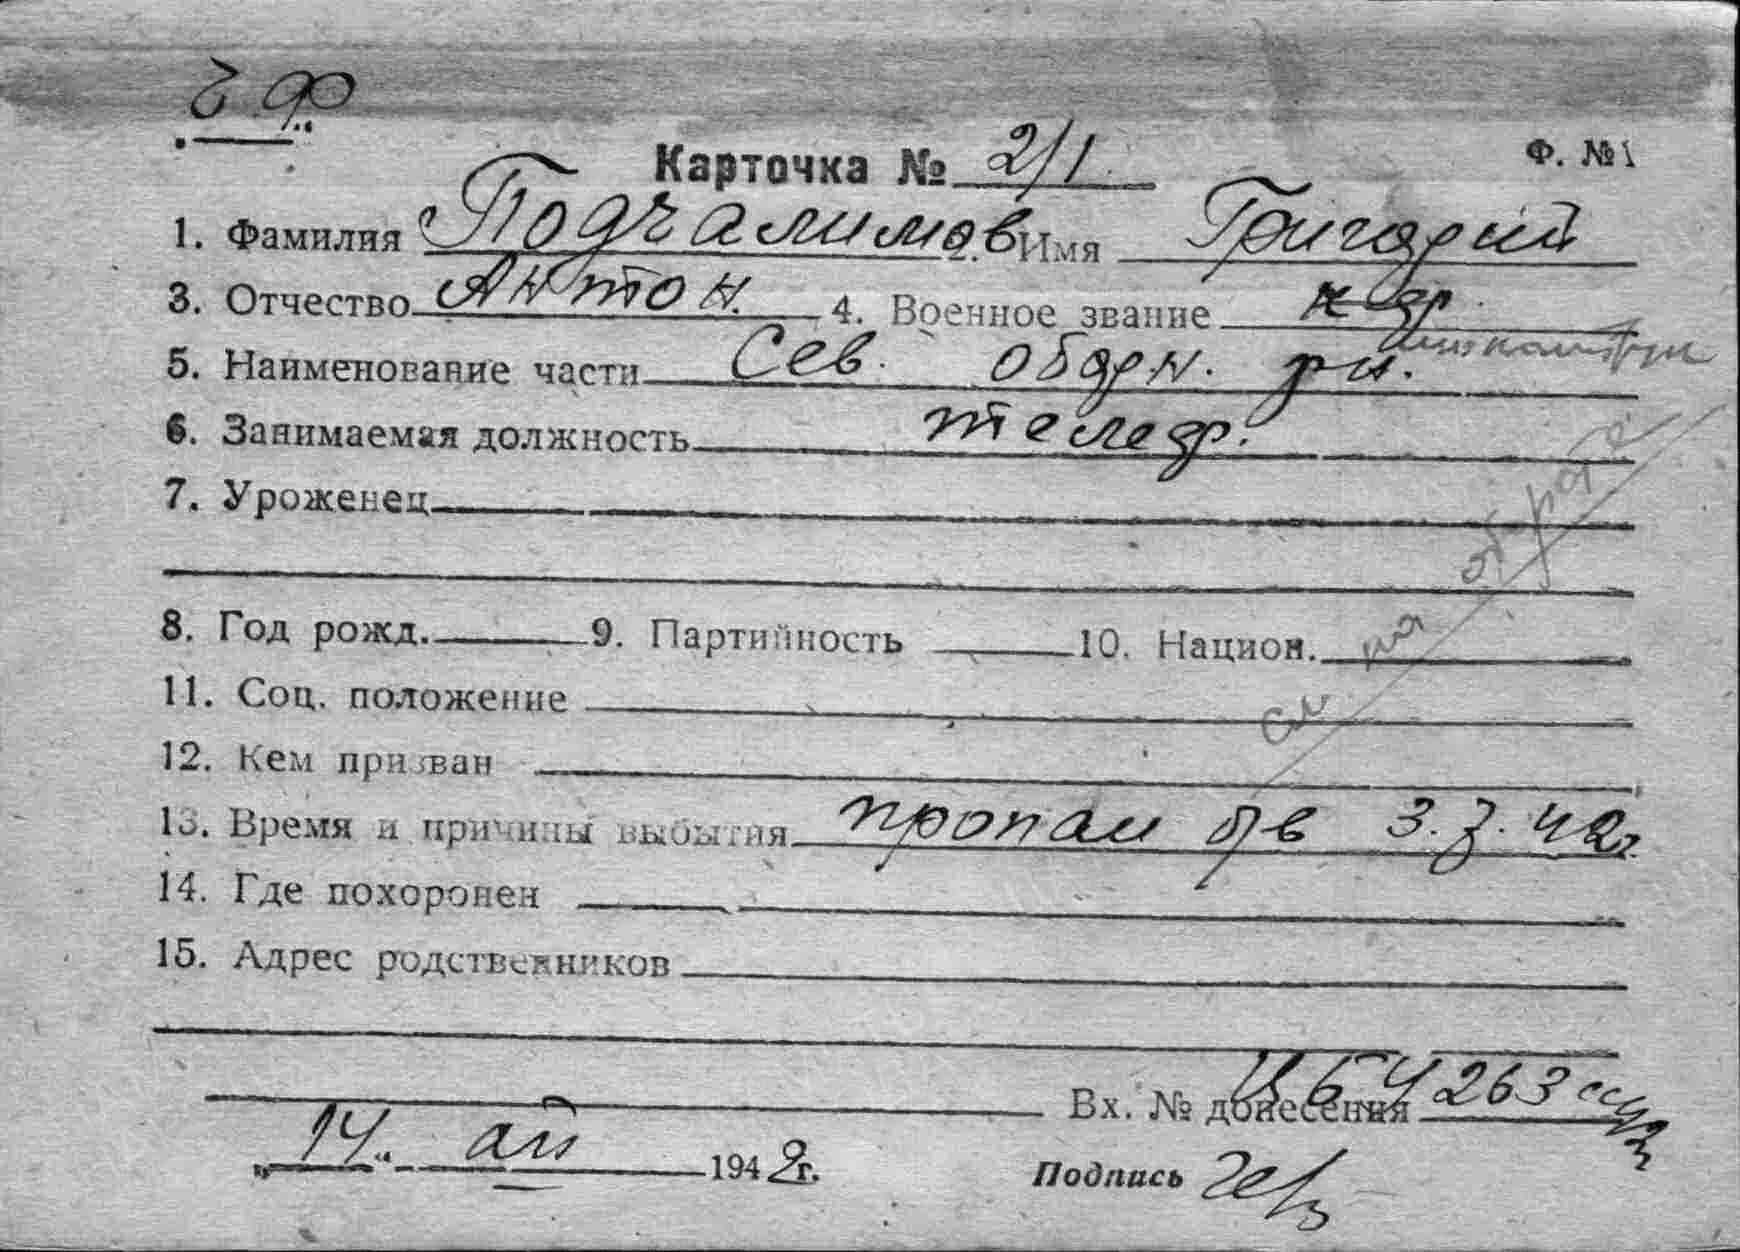 ч ф
Карточка № 2/1 Ф. №1
1. Фамилия Подчалимов 2. Имя Григорий
3. Отчество Антон. 4. Военное звание к-др
5. Наименование части Сев. оборн. рн.
6. Занимаемая должность телегр.
7. Уроженец
см на обороте
8. Год рожд. 9. Партийность 10. Национ.
11. Соц. положение
12. Кем призван
13. Время и причины выбытия пропал б/в 3.7.42г.
14. Где похоронен
15. Адрес родственников
Вх. № донесения 4263
„14“ 1942г. Подпись